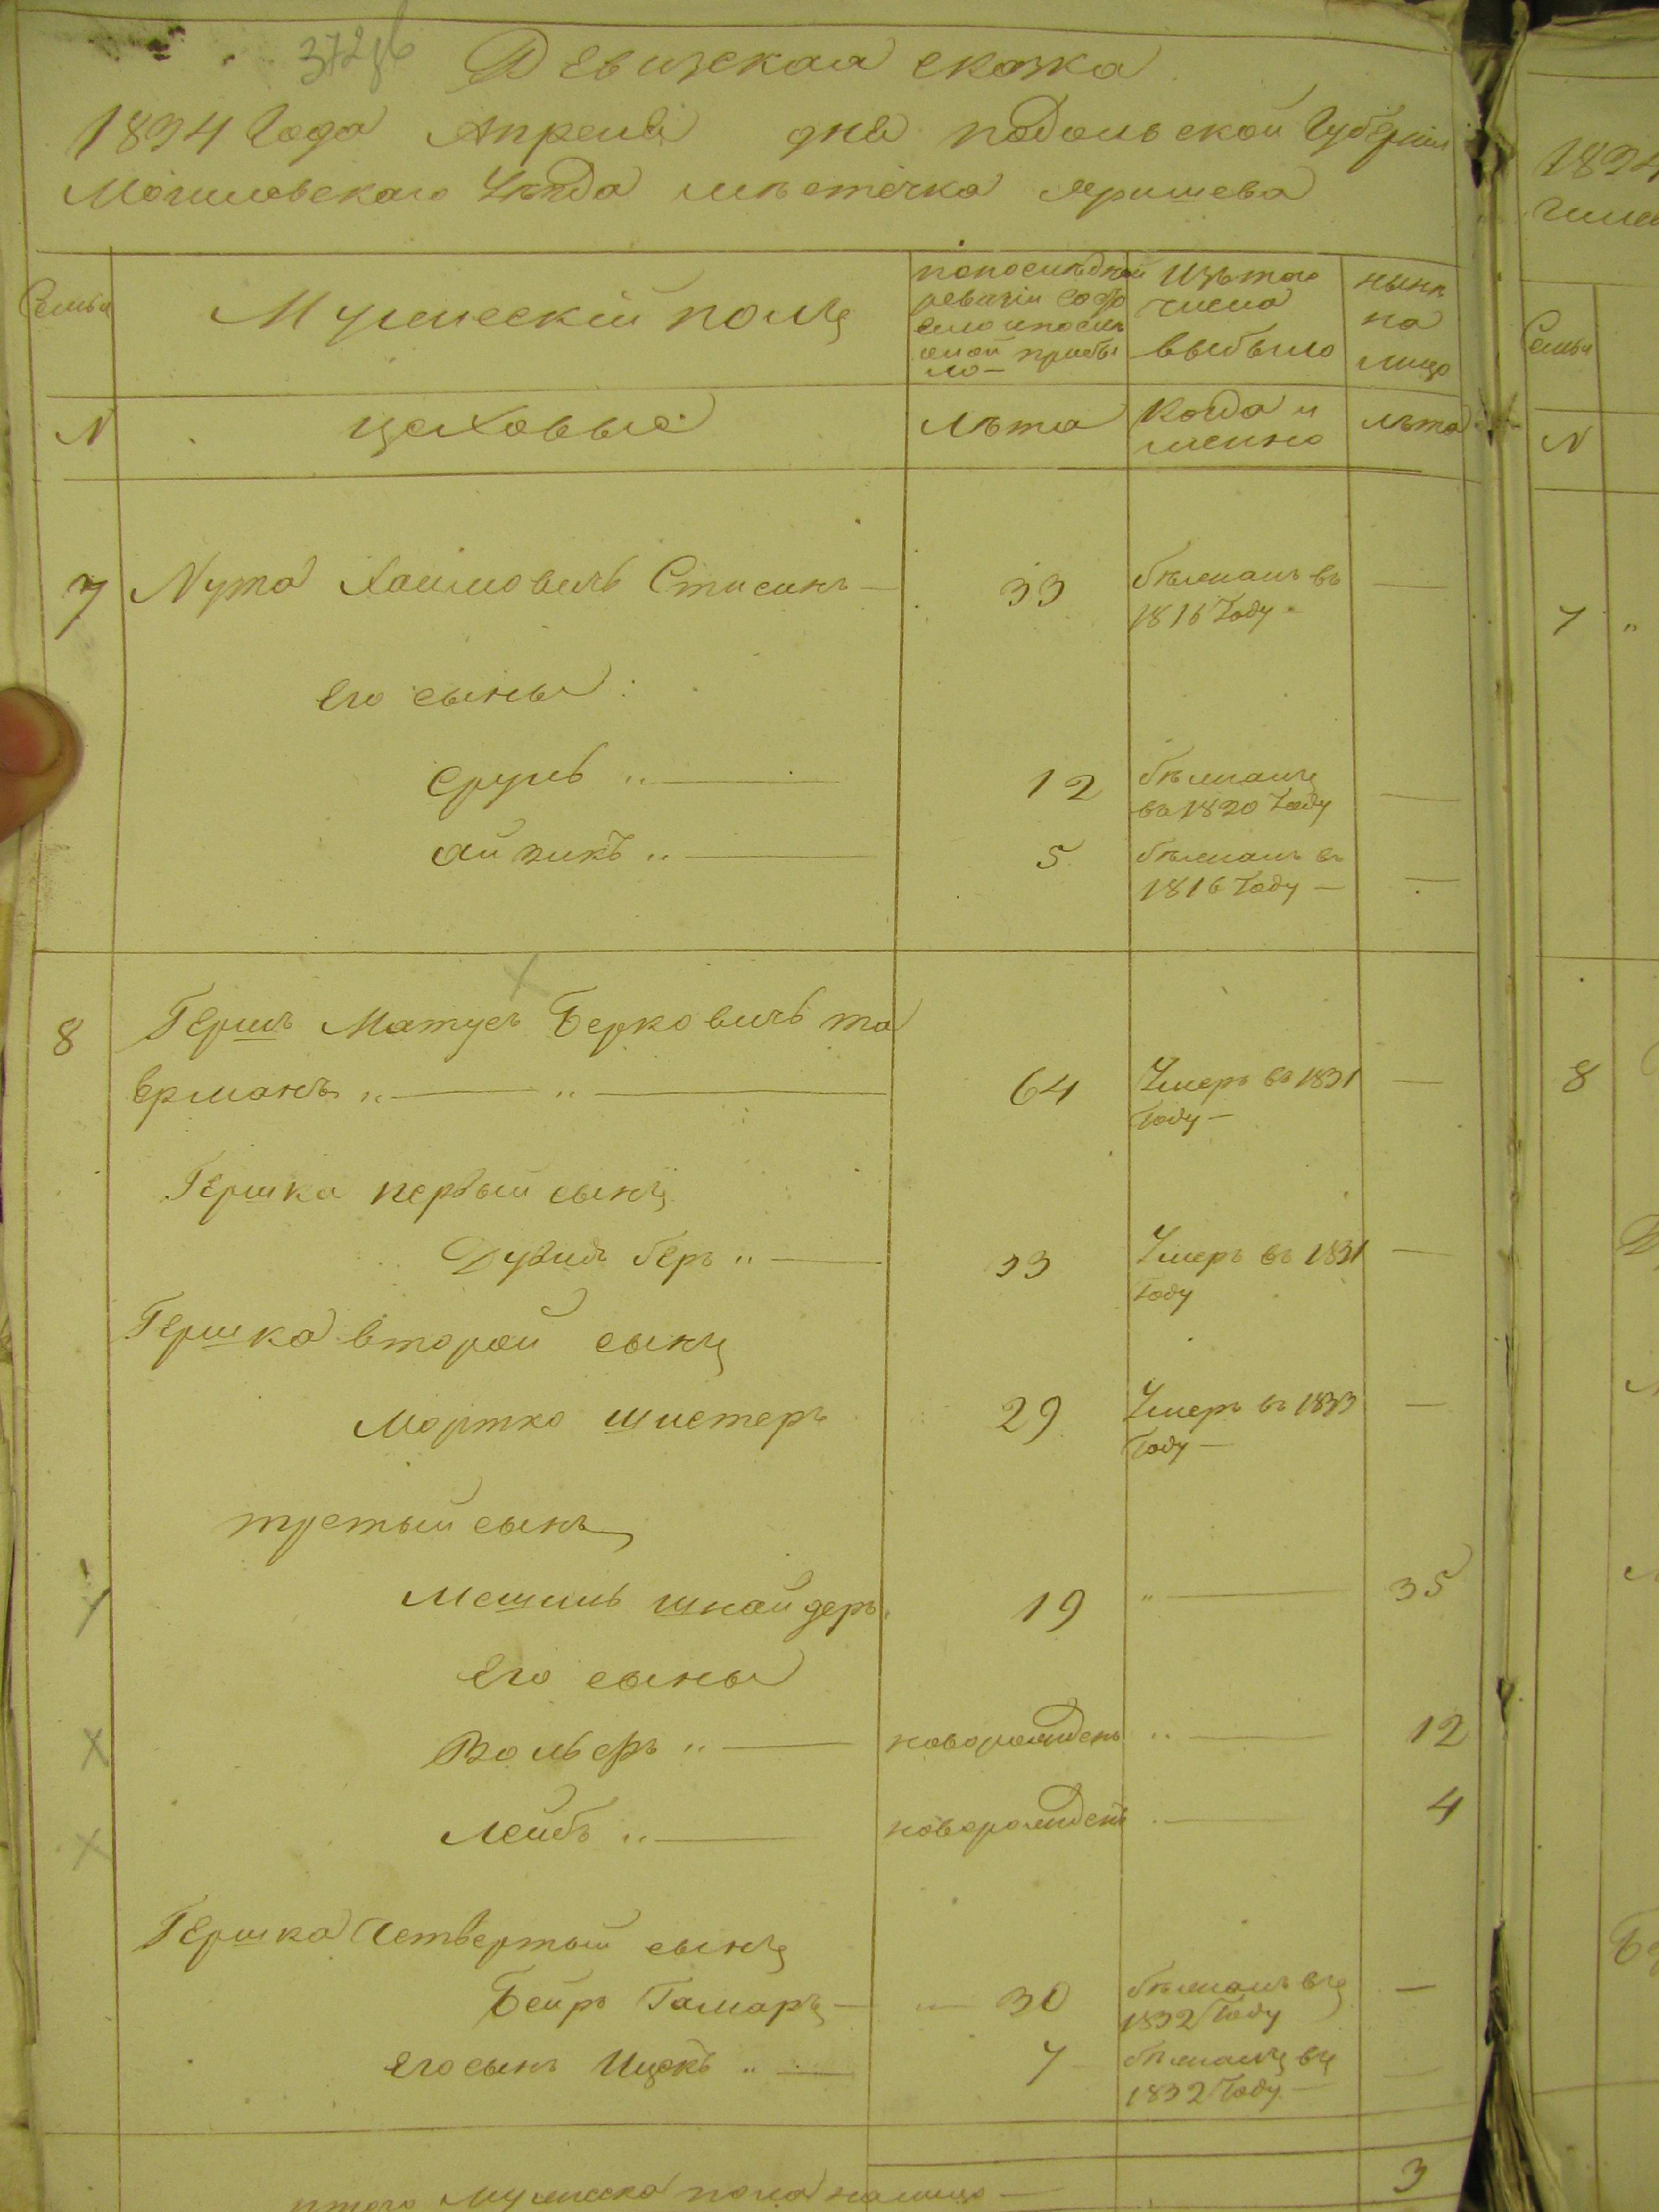 Ревизская сказка
1834 Года Апреля дня подольской Губернии
Могиловского Уѣзда мѣстечка яришева
Семьи
Мужескій полъ
по последней ревизіи состояло и после оной прибыло
Изъ того числа выбыло
нынѣ на лицо
N
цеховые
лѣта
Когда именно
лѣта
7 Нута Хаимовичь Стисинъ — 33 бѣжалъ въ —
1816 Году
его сыны:
Сруль „ — 12 бѣжалъ
въ 1820 Году —
айзикъ „ — 5 бѣжалъ въ
1816 Году — —
8 Гершъ Матусъ Берковичь та
ерманъ „ — „ — 64 Умеръ въ 1831 —
Году —
Гершка первый сынъ
Дувидъ беръ „ — 33 Умеръ въ 1831 —
Году
Гершка второй сынъ
Мортко шистеръ 29 Умеръ въ 1833 —
Году —
третый сынъ
Мешиль шнайдеръ 19 „ — 35
его сыны
Вольфъ „ — новорожденъ „ — 12
Лейбъ „ — новорожденъ — 4
Гершка Четвертый сынъ
Бейръ Гамаръ — 30 бѣжалъ въ —
1832 Году
его сынъ Ицекъ „ — 7 бѣжалъ въ —
1832 Году —
итого мужеска пола налицо — 3
1834
Семьи
N
7 „
8